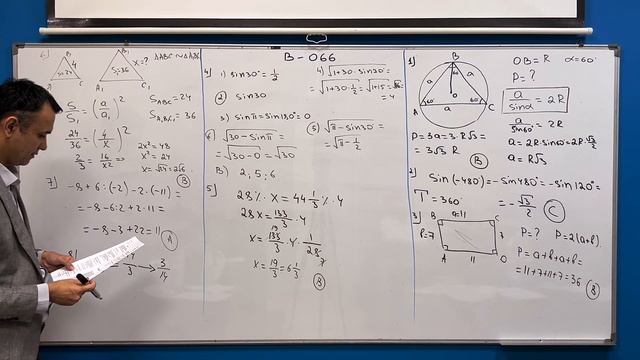 B-066
6)
B
4
S=24
A
C
B₁
x=?
S=36
A₁
C₁
ΔABC ~ ΔA₁B₁C₁
S/S₁ = (a/a₁)²
S_ABC = 24
S_A₁B₁C₁ = 36
24/36 = (4/x)²
2/3 = 16/x² ⇒
2x² = 48
x² = 24
x = √24 = 2√6
B
7) -8+6:(-2)-2·(-11)=
= -8-6:2+2·11=
= -8-3+22=11
A
8)
3/14
4) 1) sin30°=1/2
2) sin30
3) sinπ=sin180°=0
4) √(1+30·sin30°)=
=√(1+30·1/2)=√(1+15)=√16=
=4
6) √(30-sinπ)=
=√(30-0)=√30
5) √(π-sin30°)=
=√(π-1/2)
B) 2; 5; 6
5) 28%·x=44 1/3%·y
28x=133/3·y
x=133/3·y·1/28
x=19/3=6 1/3
B
1)
B
a
a
60
O
A
60
60
C
a
OB=R α=60°
P=?
a/sinα=2R
a/sin60°=2R
a=2R·sin60=2R·√3/2
a=R√3
P=3a=3·R√3=
=3√3 R
B
2) sin(-480°)=-sin480°=-sin120°=
T=360°
=-√3/2
C
3)
B
a=11
C
b=7
7
A
11
D
P=? P=2(a+b)
P=a+b+a+b=
=11+7+11+7=36
B